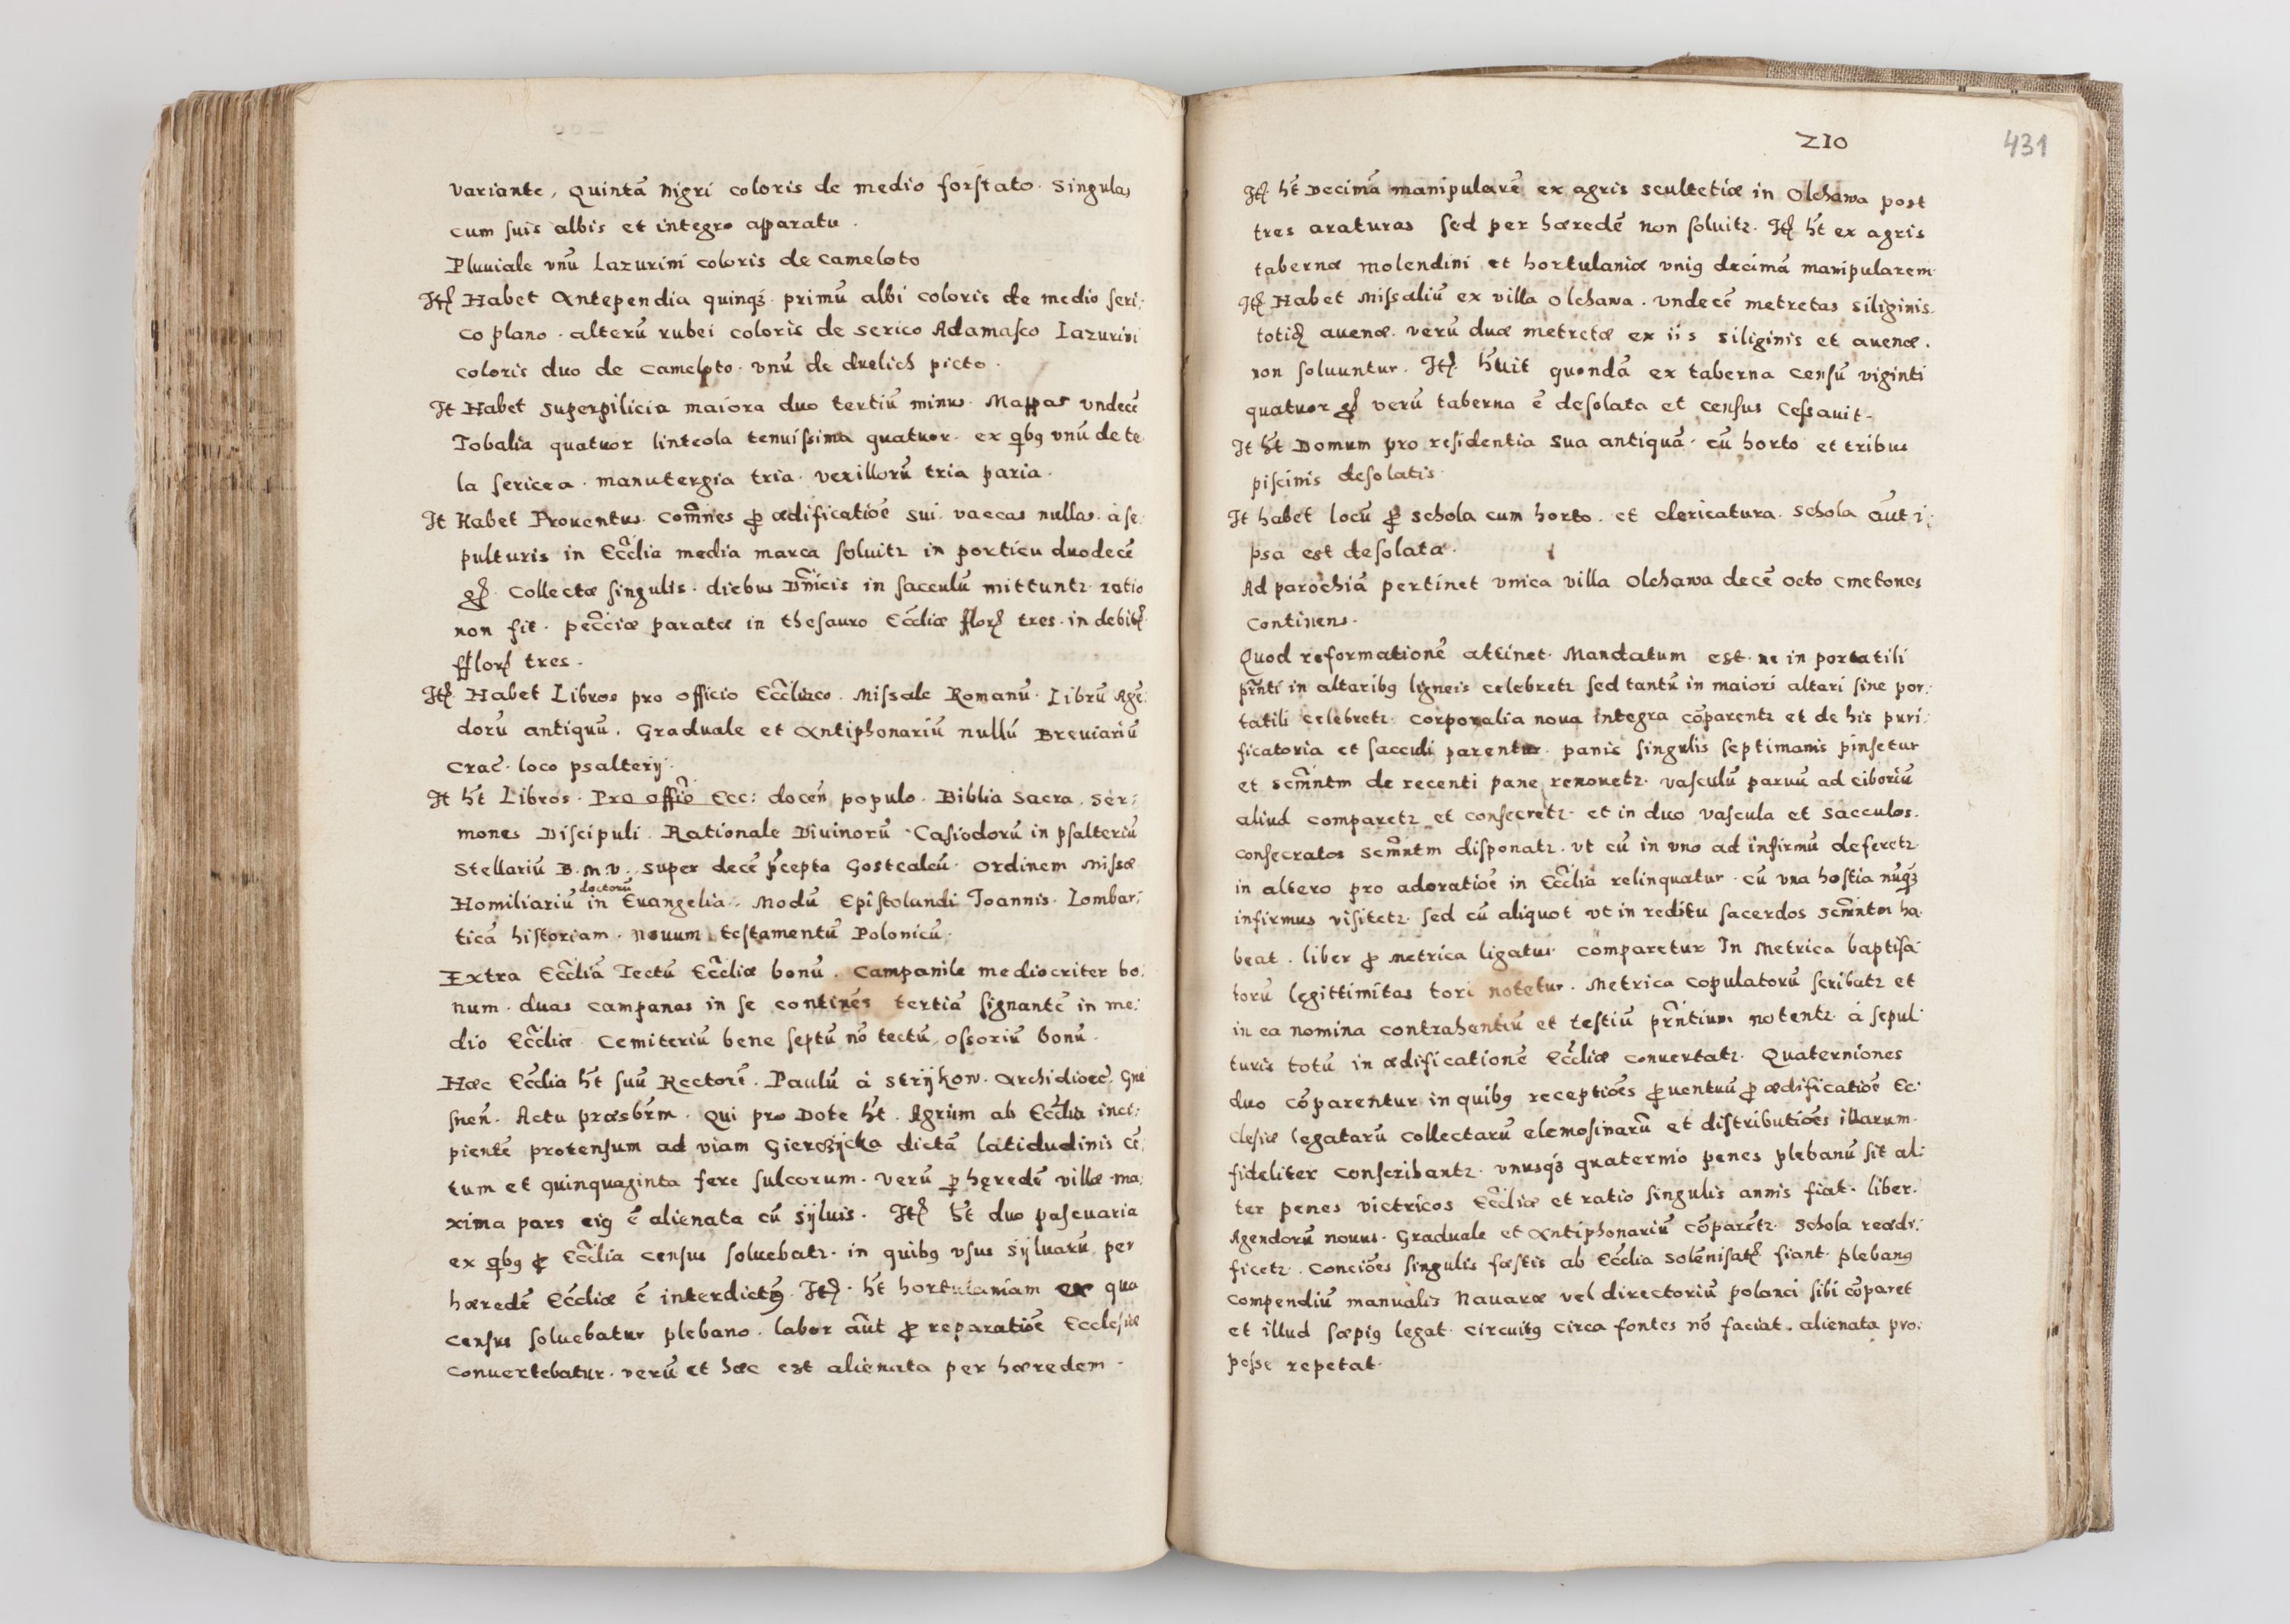 variante, Quintā Nigri coloris de medio forſtato. Singulas
cum ſuis albis et integro apparatu.
Pluuiale vnū Lazurini coloris de Cameloto
Itē Habet Antependia quinqȝ. primū albi coloris de medio ſeri:
co plano. alterū rubei coloris de Serico Adamaſco Lazurini
coloris duo de Cameloto. vnū de drelich picto.
It Habet Superpilicia maiora duo tertiū minus. Mappas vndecē
Tobalia quatuor linteola tenuiſsima quatuor. ex qbꝯ vnū de te
la ſericea. manutergia tria. vexillorū tria paria.
It Habet Prouentus. Com̄nes ꝓ ædificatiōē sui. vaccas nullas. à ſe:
pulturis in Eccl̄ia media marca ſoluitꝛ in porticu duodecē
gſ. Collectæ ſingulis. diebus Dn̄icis in ſacculū mittuntꝛ ratio
non fit. pecc̄iæ paratæ in theſauro Eccl̄iæ fflorꝭ tres. in debitꝭ
fflorꝭ tres.
Itē Habet Libros pro officio Eccl̄iaco. Miſsale Romanū. Librū Agē:
dorū antiquū. Graduale et Antiphonariū nullū Breuiariū
Crac̄. loco psalterij.
It hēt Libros. Pro offīo Ecc: docen̄ populo. Biblia Sacra. Ser:
mones Diſcipuli. Rationale Diuinorū. Caſiodorū in pſalteriū
Stellariū B.M.V. super decē p̄cepta Gostcalcū. Ordinem Miſsæ
doctorū
Homiliariū in Euangelia. Modū Epiſtolandi Joannis. Lombar:
ticā hiſtoriam. Nouum teſtamentū Polonicū.
Extra Eccl̄iā Tectū Eccl̄iæ bonū. Campanile mediocriter bo:
num. duas campanas in ſe continēs tertiā ſignantē in me:
dio Eccl̄iæ. Cemiteriū bene ſeptū nō tectū, oſsoriū bonū.
Hæc Eccl̄ia hēt ſuū Rectorē. Paulū à Strijkow. Archidioec̄. Gne
ſnen̄. Actu præsbr̄m. Qui pro Dote hēt. Agrum ab Eccl̄ia inci:
pientē protenſum ad viam dictā latidudinis cē:
tum et quinquaginta fere ſulcorum. verū ꝑ hęredē villæ ma:
xima pars eiꝯ ē alienata cū Sÿluis. Itē hēt duo paſcuaria
ex qbꝯ ꝓ Eccl̄ia census ſoluebatꝛ. in quibꝯ vſus Sÿluarū per
hæredē Eccl̄iæ ē interdictꝯ. Itē. hēt hortulaniam ex qua
cenſus ſoluebatur plebano. labor aūt ꝓ reparatiōē Eccleſiæ
conuertebatur. verū et hæc est alienata per hæredem.
210
431
Itē hēt Decimā manipularē ex agris scultetiæ in Olchawa post
tres araturas ſed per hæredē non ſoluitꝛ. Itē hēt ex agris
tabernæ molendini et hortulaniæ vniꝯ decimā manipularem
Itē Habet Miſsaliū ex villa Olchawa. vndecē metretas Siliginis
totidē auenæ. verū duæ metretæ ex iis siliginis et auenæ.
non ſoluuntur. Itē. hūit quondā ex taberna cenſū viginti
quatuor gſ verū taberna ē deſolata et cenſus Ceſsauit.
It hēt Domum pro reſidentia sua antiquā. cū horto et tribus
piſcinis deſolatis.
It habet locū ꝓ schola cum horto. et clericatura. Schola aūt i:
psa est deſolata.
Ad parochiā pertinet vnica villa Olchawa decē octo cmetones
continens.
Quod reformationē attinet. Mandatum est. ne in portatili
pr̄nti in altaribꝯ ligneis celebretꝛ ſed tantū in maiori altari ſine por:
tatili celebretꝛ. Corporalia noua integra cōparentꝛ et de his puri:
ficatoria et ſacculi parentur. panis ſingulis ſeptimanis pinſetur
et Scm̄ntm de recenti pane renouetꝛ. vaſculū paruū ad ciboriū
aliud comparetꝛ et conſecretꝛ. et in duo vaſcula et Sacculos.
conſecratos Scm̄ntm diſponatꝛ. vt cū in vno ad infirmū deferetꝛ
in altero pro adoratiōē in Eccl̄ia relinquatur. cū vna hoſtia nūqȝ
infirmus viſitetꝛ. ſed cū aliquot vt in reditu ſacerdos Scm̄ntm ha.
beat. liber ꝓ metrica ligatus comparetur In Metrica baptiſa
torū legittimitas tori notetur. Metrica copulatorū ſcribatꝛ et
in ea nomina contrahentiū et teſtiū pr̄ntium notentꝛ. à ſepul
turis totū in ædificationē Eccl̄iæ conuertatꝛ. Quaterniones
duo cōparentur in quibꝯ receptiōēs ꝓuentuū ꝓ ædificatiōē Ec:
cleſiæ legatarū collectarū elemoſinarū et diſtributiōēs illarum.
fideliter conſcribantꝛ. vnusqȝ quaternio penes plebanū ſit al:
ter penes victricos Eccl̄iæ et ratio ſingulis annis fiat. liber.
Agendorū nouus. Graduale et Antiphonariū cōparētꝛ. Schola reædi:
ficetꝛ. Conciōēs ſingulis fæſtis ab Eccl̄ia Solēniſatꝭ fiant. plebanꝯ
compendiū manualis Nauaræ vel directoriū polanci ſibi cōparet
et illud ſæpiꝯ legat. circuitꝯ circa fontes nō faciat. alienata pro.
peſse repetat.